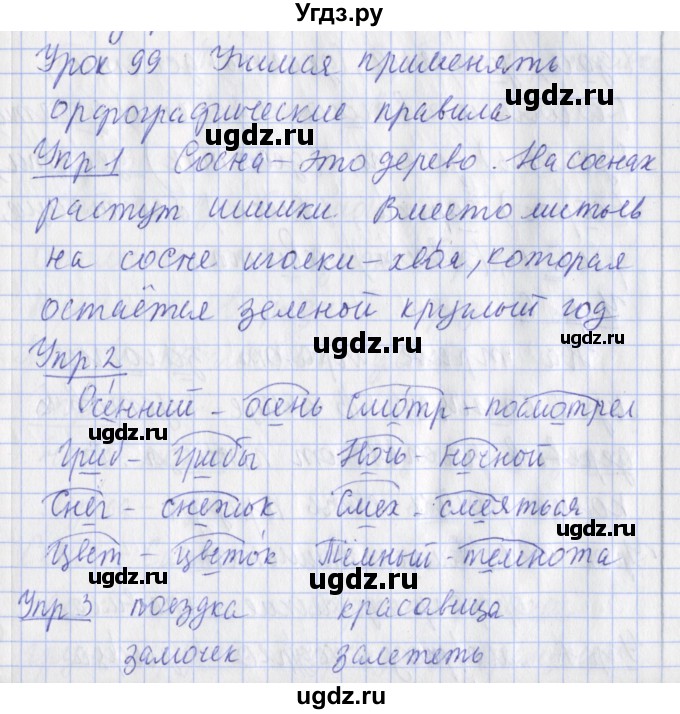 Угдз.ру
Урок 99 Учимся применять
ugdz.ru
орфографические правила
ugdz.ru ugdz.ru
Упр 1 Сосна – это дерево. На соснах
растут шишки Вместо листьев
на сосне иголки – хвоя, которая
ugdz.ru
остаётся зеленой круглый год
ugdz.ru
Упр. 2
Осенний – осень Смотр – посмотрел
ugdz.ru ugdz.ru
Гриб – грибы Ночь – ночной
ugdz.ru
Снег – снежок Смех – смеяться
ugdz.ru
Цвет – цветок Тёмный – темнота
ugdz.ru
Упр 3 поездка красавица
ugdz.ru
замочек залететь
ugdz.ru